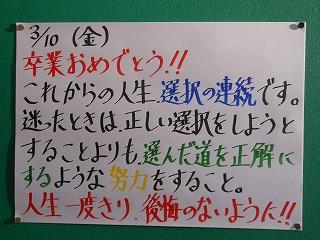 3/10 (金)
卒業おめでとう!!
これからの人生、選択の連続です。
迷ったときは、正しい選択をしようと
することよりも、選んだ道を正解に
するような努力をすること。
人生一度きり、後悔のないように!!